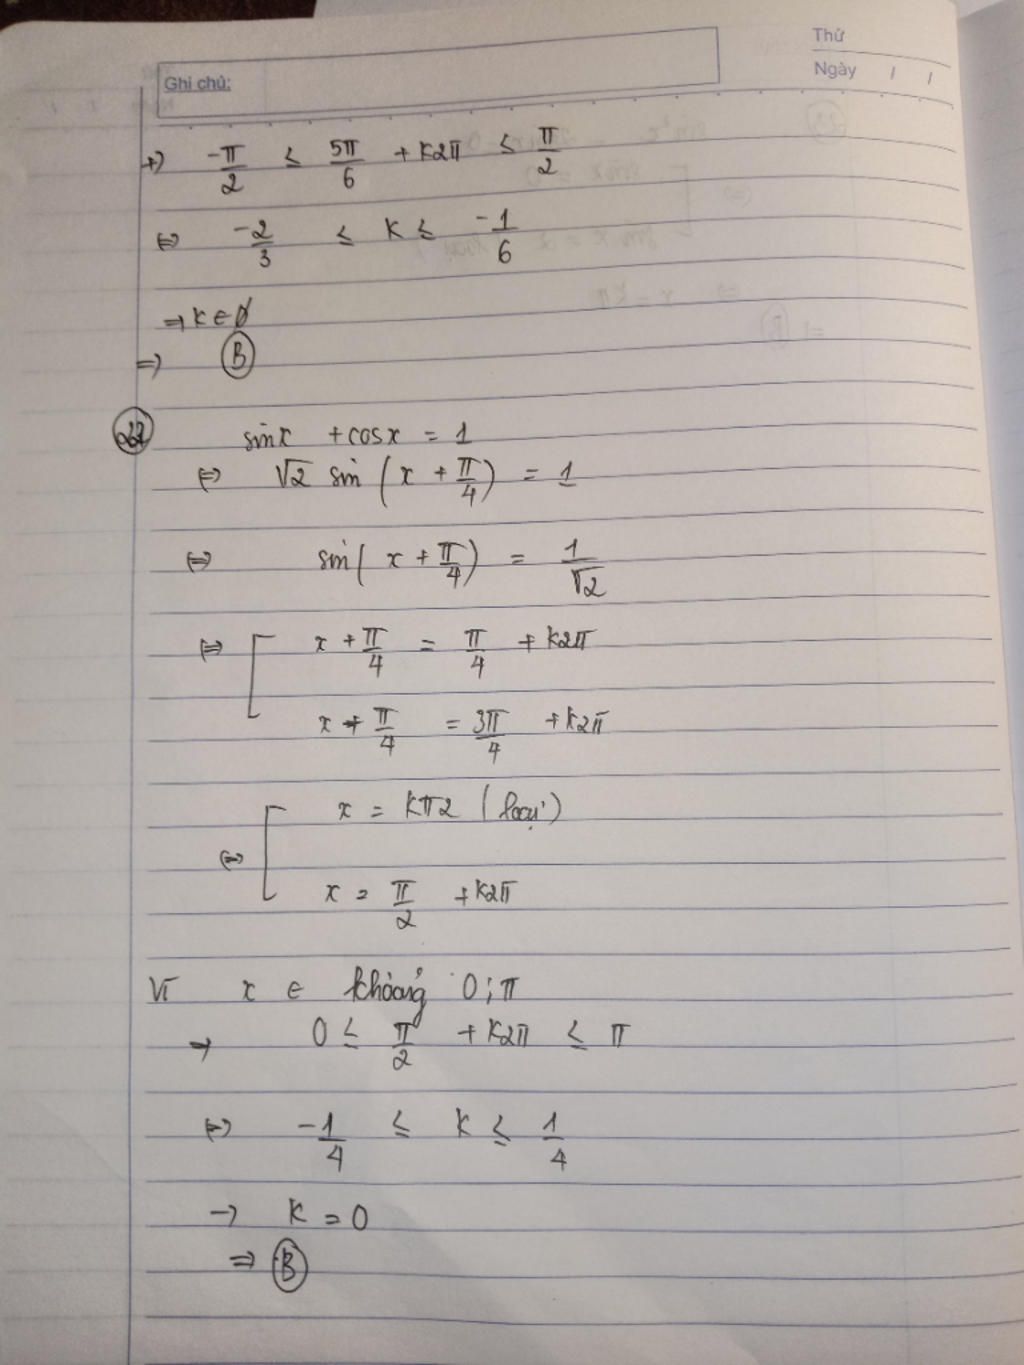 Thứ
Ghi chú:
Ngày / /
+) -π/2 ≤ 5π/6 + k2π ≤ π/2
⇔ -2/3 ≤ k ≤ -1/6
⇒ k ∈ ∅
⇒ B
sinx + cosx = 1
⇔ √2 sin (x + π/4) = 1
⇔ sin(x + π/4) = 1/√2
⇔ [ x + π/4 = π/4 + k2π
x + π/4 = 3π/4 + k2π
⇔ [ x = kπ2 (loại)
x = π/2 + k2π
Vì x ∈ khoảng 0;π
→ 0 ≤ π/2 + k2π ≤ π
⇔ -1/4 ≤ k ≤ 1/4
→ k = 0
⇒ B